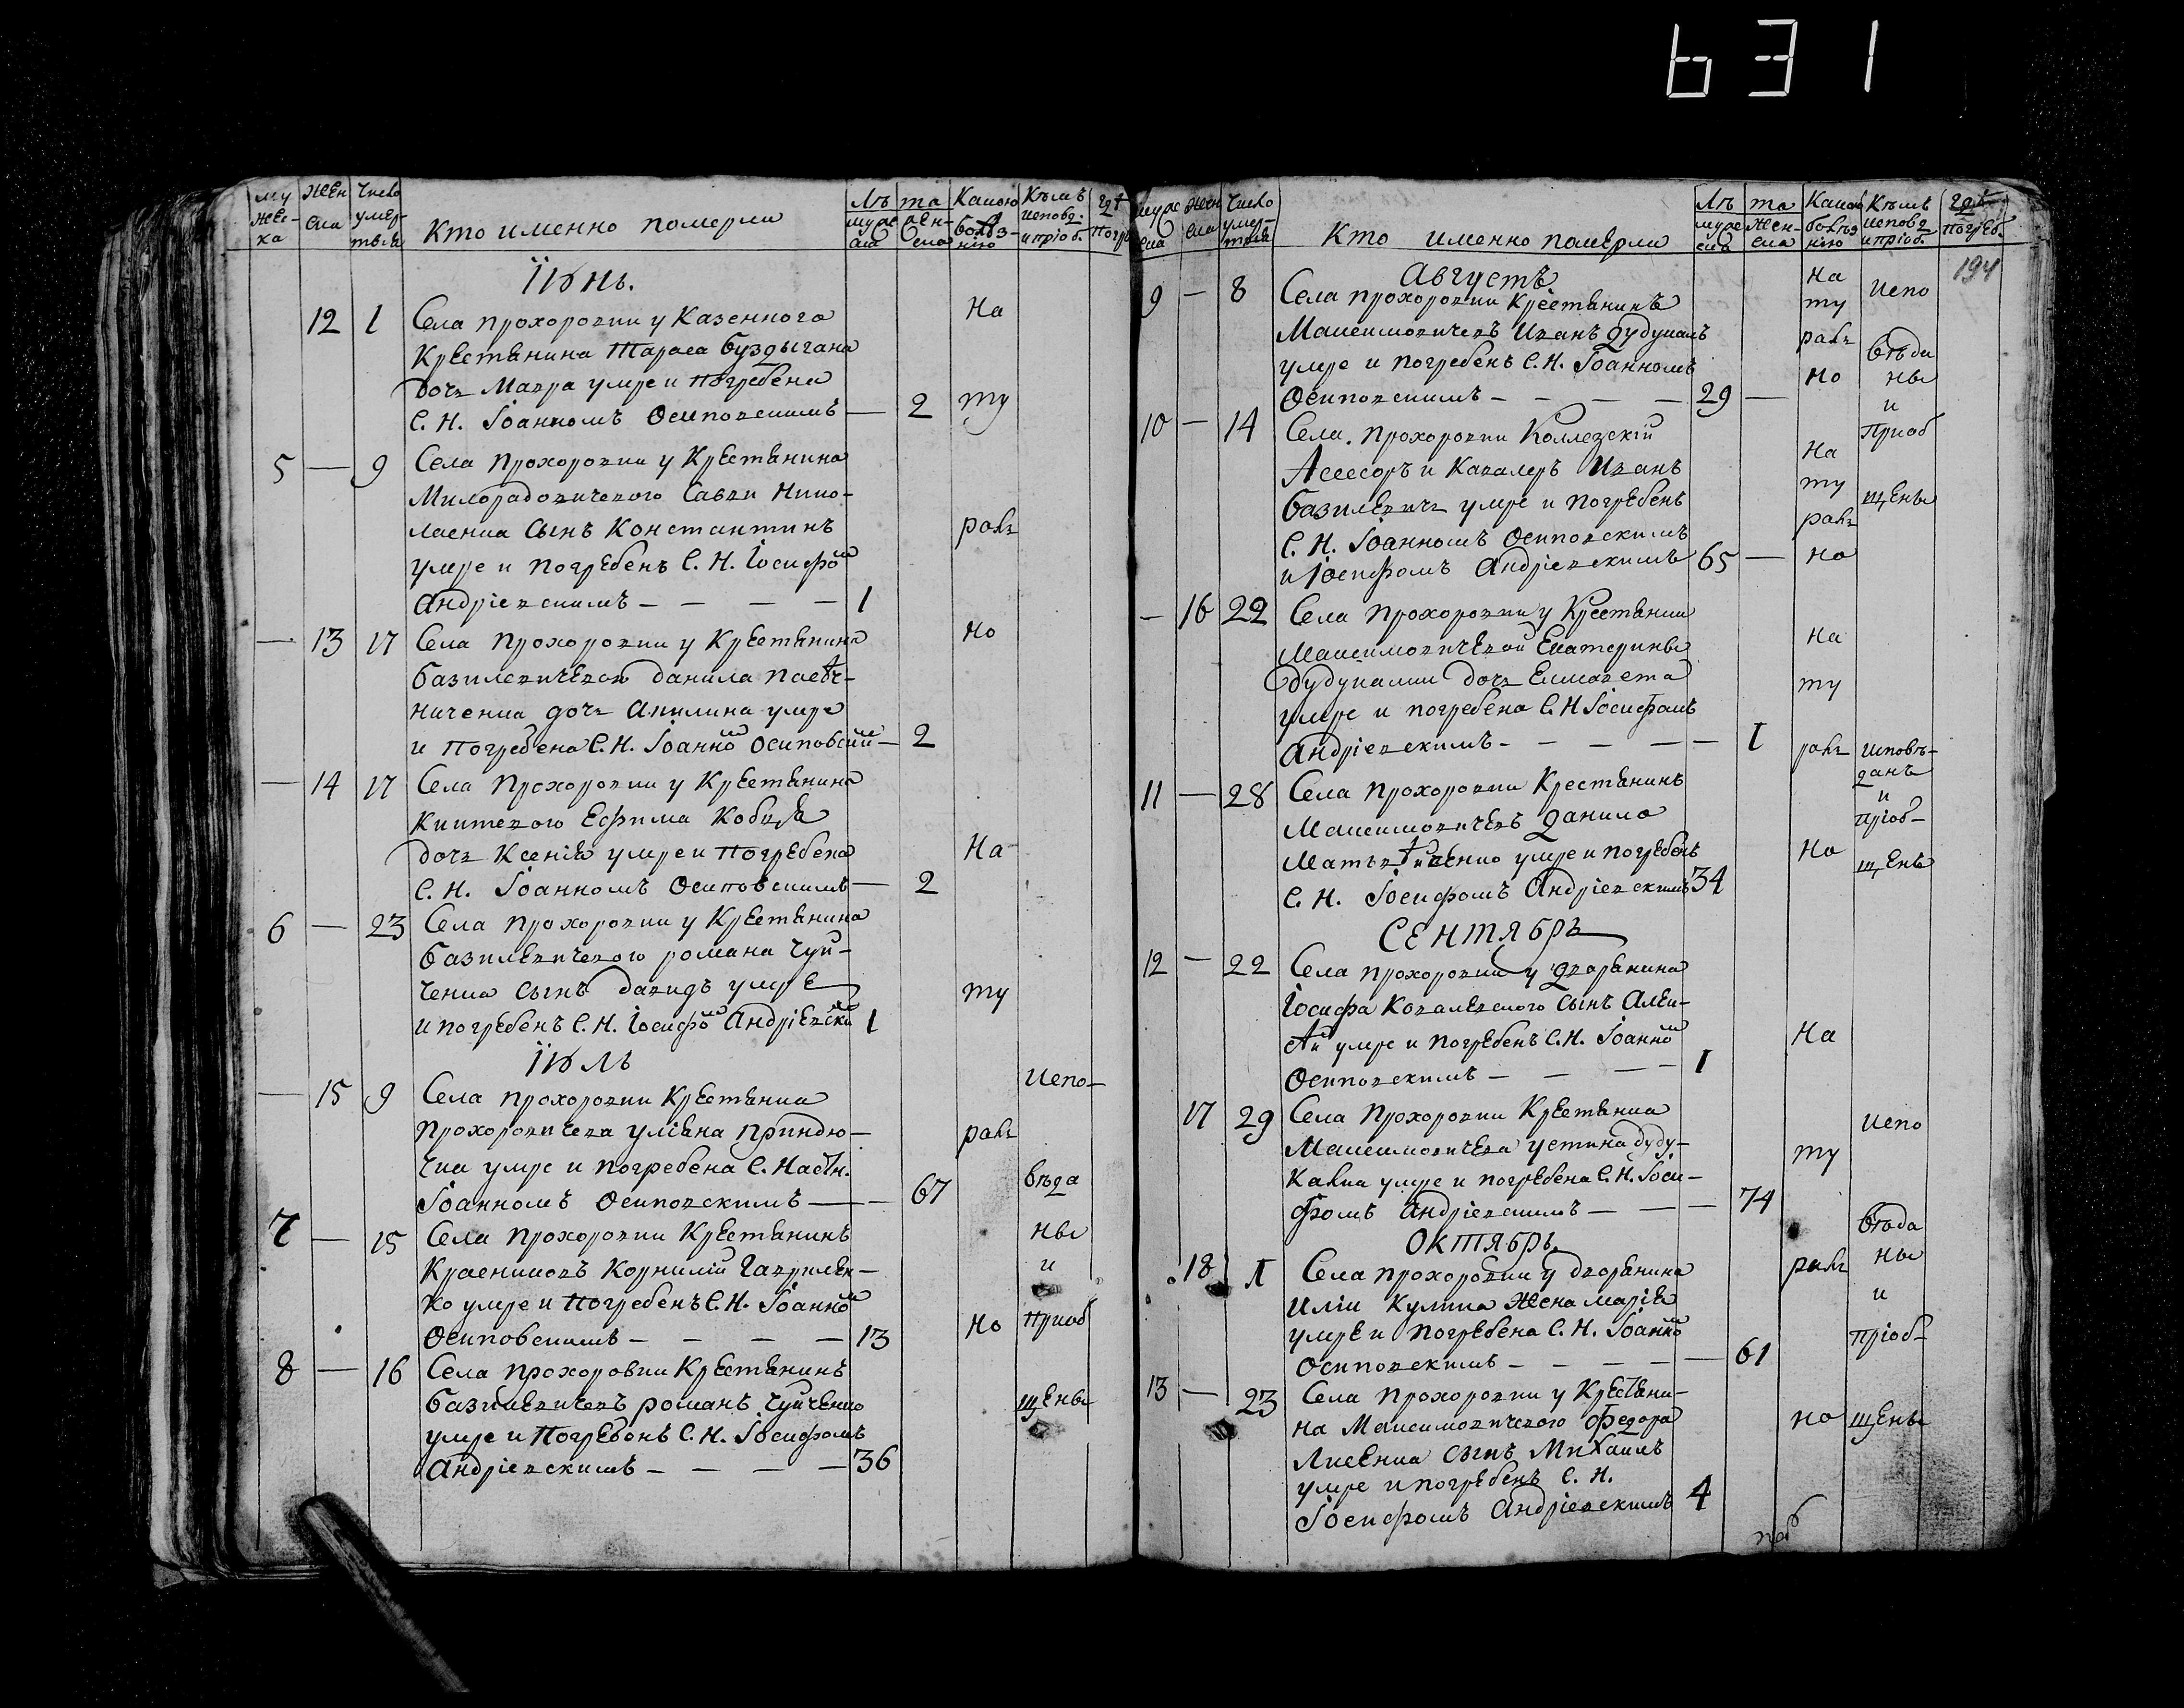 631
му жес- ка
жен ска
число умер- твія
кто именно померли
лѣ та
муже ска
жен- ска
какою болѣз- нію
кѣмъ исповѣ. и пріоб.
гдѣ погре
Іюнь.
12 1 Села Прохоровки у казенного
крестянина Тараса Буздыгана
дочь Мавра умре и погребена
С. Н. Іоанномъ Осиповскимъ — 2
5 — 9 Села Прохоровки у крестянина
Милорадовичевого Савки Нико-
лаенка сынъ Константинъ
умре и погребенъ С. Н. Іосифом
Андріевскимъ — — — — 1
— 13 17 Села Прохоровки у крестянина
Базилевичевого Данила Пасѣч-
ниченка дочь Акилина умре
и погребена С. Н. Іоанном Осиповским — 2
— 14 17 Села Прохоровки у крестянина
Книтевого Ефима Кобця
дочь Ксенія умре и погребена
С. Н. Іоанномъ Осиповскимъ — 2
6 — 23 Села Прохоровки у крестянина
Базилевичевого Романа Чуй-
ченка сынъ Давидъ умре
и погребенъ С. Н. Іосифом Андріевским 1
Іюль
— 15 9 Села Прохоровки крестянка
Прохоровичева Уліяна Приндю-
чка умре и погребена С. Настн.
Іоанномъ Осиповскимъ — — 67
7 — 15 Села Прохоровки крестянинъ
Краснишовъ Корнилій Гаврилен-
ко умре и погребенъ С. Н. Іоанном
Осиповскимъ — — — — 13
8 — 16 Села Прохоровки крестянинъ
Базилевичевъ Романъ Чуйченко
умре и погребонъ С. Н. Іосифомъ
Андріевскимъ — — — — 36
На
ту
раль
но
На
ту
раль
но
Испо-
вѣда
ны
и
приоб
щены
муже ска
жен ска
число умер- твія
кто именно померли
лѣ та
муже ска
жен- ска
какою болѣз нію
кѣмъ исповѣ и пріоб.
гдѣ погреб.
194
Августъ
9 — 8 Села Прохоровки крестянинъ
Максимовичевъ Иванъ Дудукалъ
умре и погребенъ С. Н. Іоанномъ
Осиповскимъ — — — — 29 —
10 — 14 Села. Прохоровки Коллезскій
Асессоръ и Кавалеръ Иванъ
Базилевичъ умре и погребенъ
С. Н. Іоанномъ Осиповскимъ
и Іосифомъ Андріевскимъ 65 —
— 16 22 Села Прохоровки у крестянки
Максимовичевой Екатерины
Дудукалки дочь Елисавета
умре и погребена С. Н Іосифомъ
Андріевскимъ — — — — — 1
11 — 28 Села Прохоровки крестянинъ
Максимовичевъ Данило
умре и погребенъ
С. Н. Іосифомъ Андріевскимъ 34
Сентябрь
12 — 22 Села Прохоровки у дворянина
Іосифа Ковалевского сынъ Алек-
сѣй умре и погребенъ С. Н. Іоанном
Осиповскимъ — — — — 1
17 29 Села Прохоровки крестянка
Максимовичева Устина Дуду-
калка умре и погребена С. Н. Іоси-
фомъ Андріевскимъ — — — 74
Октябрь
18 Села Прохоровки у дворянина
Иліи Кулика жена Марія
умре и погребена С. Н. Іоанном
Осиповскимъ — — — — — 61
13 — 23 Села Прохоровки у крестяни-
на Максимовичевого Федора
Лисенка сынъ Михаилъ
умре и погребенъ С. Н.
Іосифомъ Андріевскимъ 4
На
ту
раль
но
На
ту
раль
но
На
ту
раль
но
На
ту
раль
но
Испо
вѣда
ны
и
приоб
щены
исповѣ-
данъ
и
пріоб-
щенъ
испо
вѣда
ны
и
пріоб-
щены